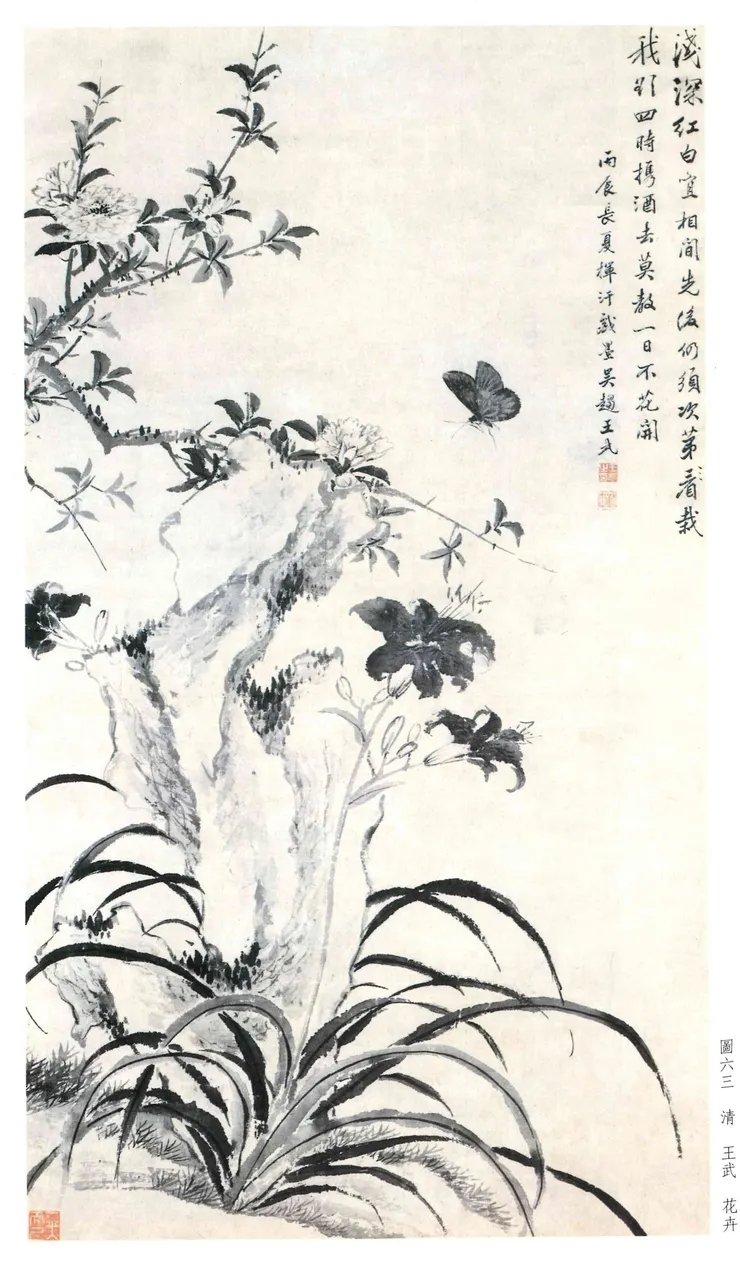 淺深紅白宜相間先後仍須次第看栽
我欲四時携酒去莫教一日不花開
丙辰長夏揮汗戲墨吳趨王武
圖六三 清 王武 花卉